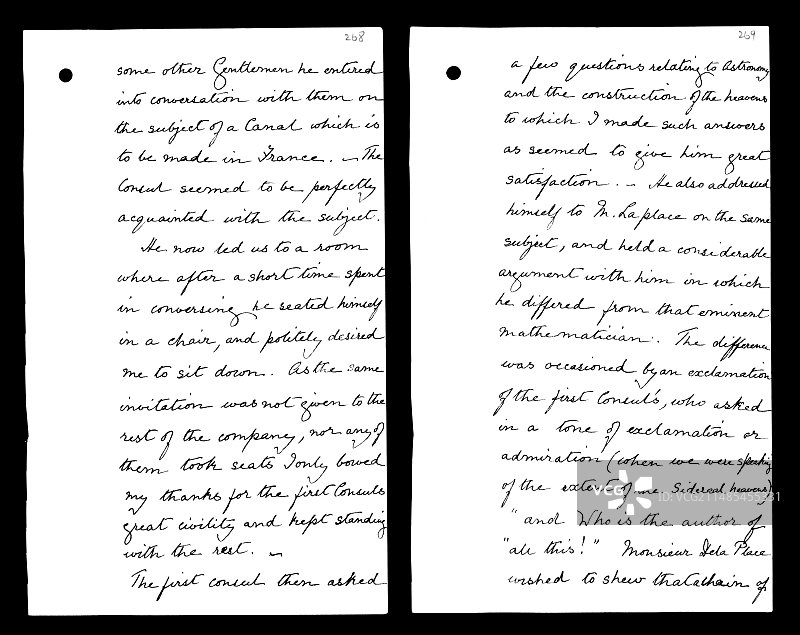 268
some other Gentlemen he entered
into conversation with them on
the subject of a Canal which is
to be made in France. — The
Consul seemed to be perfectly
acquainted with the subject.
He now led us to a room
where after a short time spent
in conversing he seated himself
in a chair, and politely desired
me to sit down. As the same
invitation was not given to the
rest of the company, nor any of
them took seats I only bowed
my thanks for the first Consuls
great civility and kept standing
with the rest. —
The first consul then asked
269
a few questions relating to Astronomy
and the construction of the heavens
to which I made such answers
as seemed to give him great
satisfaction. — He also addressed
himself to M. Laplace on the same
subject, and held a considerable
argument with him in which
he differed from that eminent
mathematician. The difference
was occasioned by an exclamation
of the first Consul's, who asked
in a tone of exclamation or
admiration (when we were speaking
of the extent of the Sidereal heavens)
"and Who is the author of
"all this!" Monsieur De la Place
wished to shew that a chain of
VCG
ID:VCG211485455231